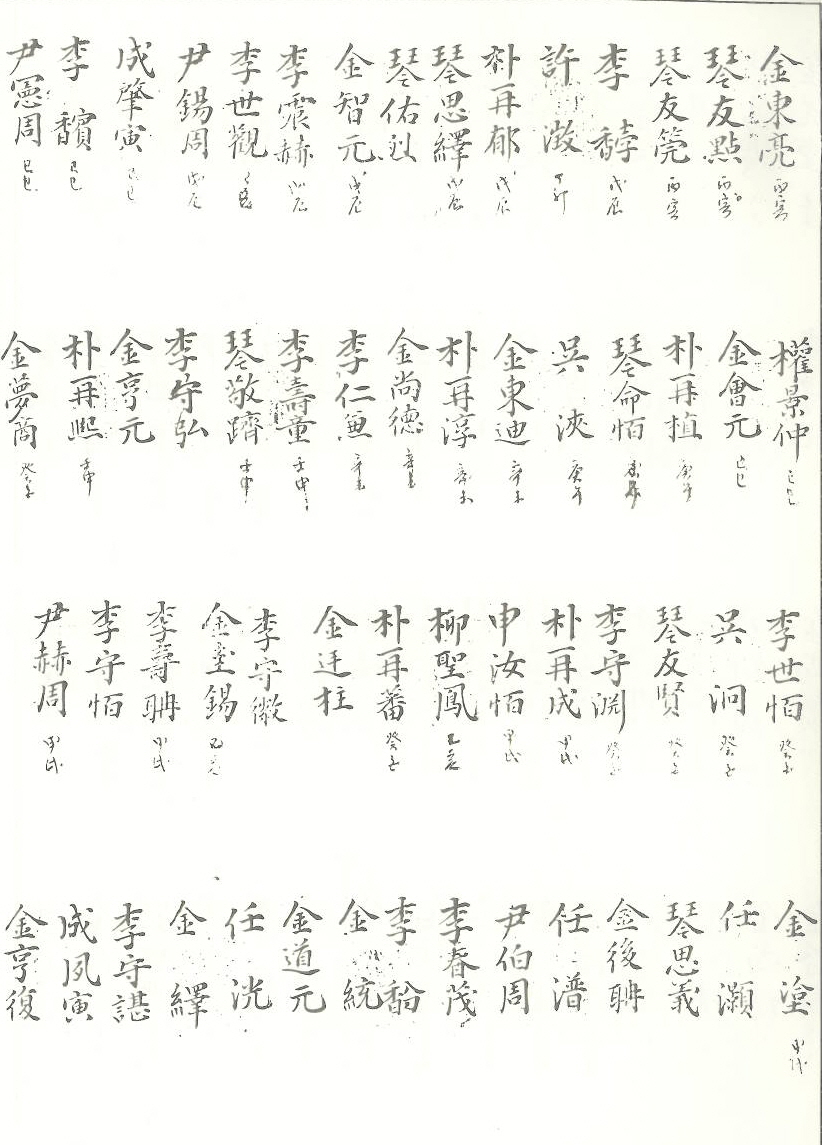 金東亮 丙寅
琴友點 丙寅
琴友筦 丙寅
李馞 戊辰
許澂 丁卯
朴再郁 戊辰
琴思繹 戊辰
琴佑烈
金智元 戊辰
李震赫 戊辰
李世觀 戊辰
尹錫周 戊辰
成肇寅 己巳
李馪 己巳
尹寬周 己巳
權景仲 己巳
金會元 己巳
朴再植 庚午
琴命恒 庚午
吳浹 庚午
金東迪 辛未
朴再淳 辛未
金尚德 辛未
李仁兼 辛未
李壽童 壬申
琴敬躋 壬申
李守弘
金亨元
朴再熙 壬申
金夢商 癸酉
李世恒 癸酉
吳泂 癸酉
琴友賢 癸酉
李守淵 癸酉
朴再成 甲戌
申汝恒 甲戌
柳聖鳳 乙亥
朴再蕃 癸酉
金廷柱
李守徽
金臺錫 乙亥
李壽聃 甲戌
李守恒
尹赫周 甲戌
金塗 甲戌
任灝
琴思義
金後聃
任潽
尹伯周
李春茂
李馠
金統
金道元
任洸
金繹
李守諶
成夙寅
金亨復